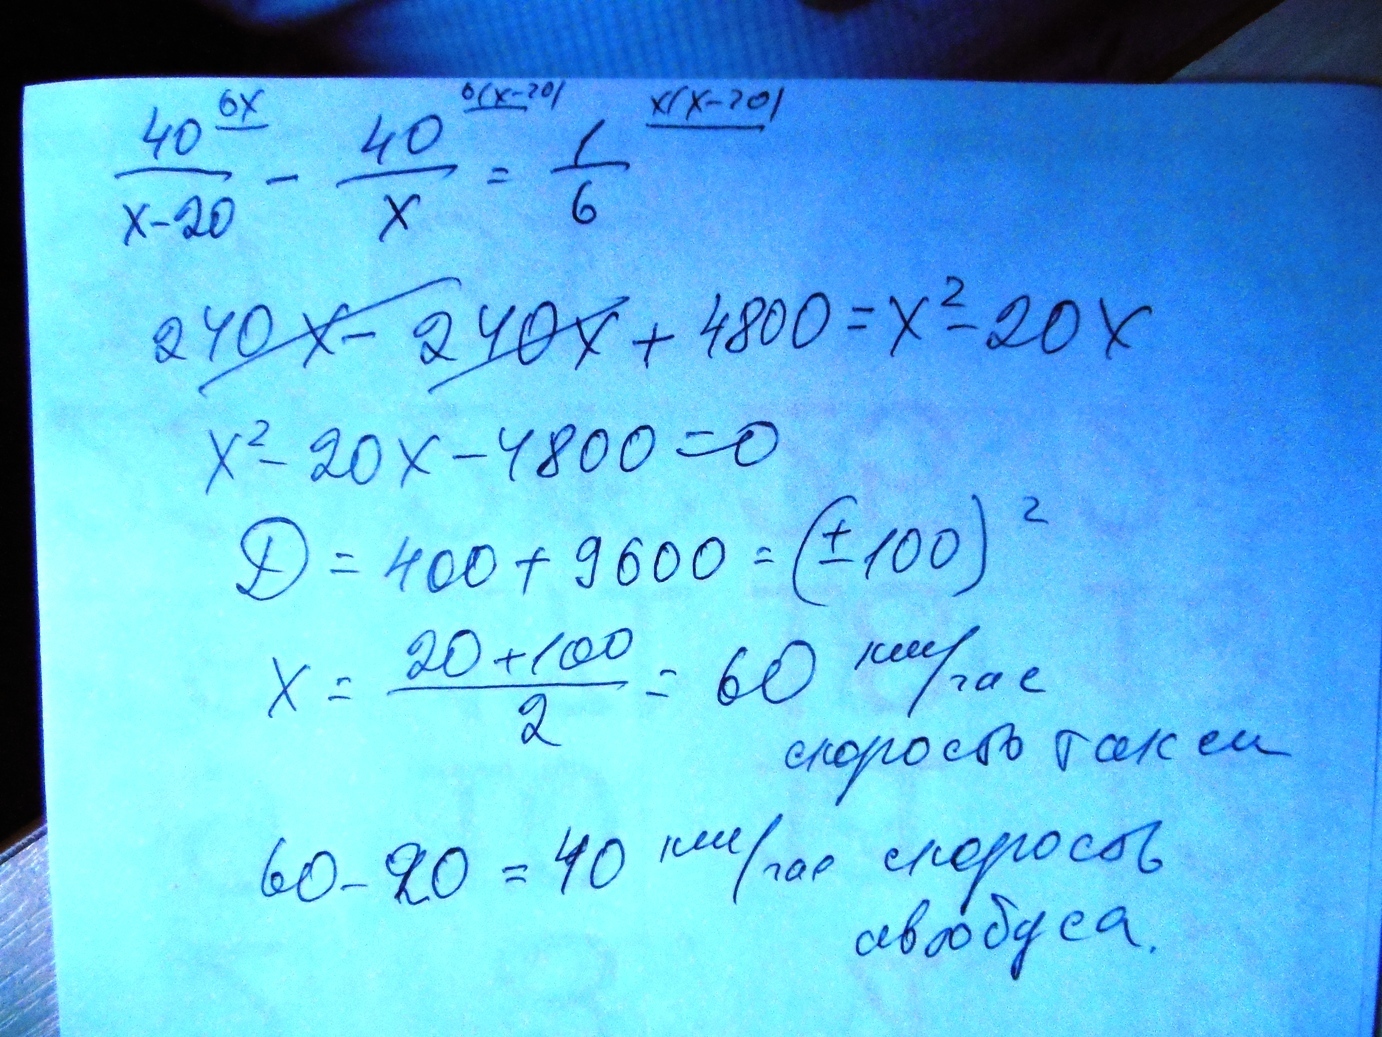 40/(x-20) 6x - 40/x 6(x-20) = 1/6 x(x-20)
240x - 240x + 4800 = x² - 20x
x² - 20x - 4800 = 0
D = 400 + 9600 = (±100)²
x = (20+100)/2 = 60 км/час
скорость такси
60 - 20 = 40 км/час скорость
автобуса.